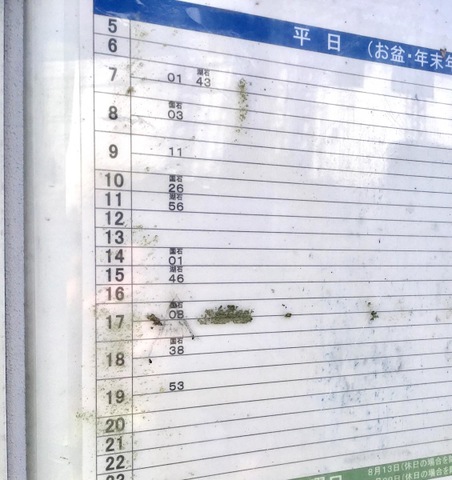 平日 (お盆・年末年
5
6
7 01 湖石 43
8 国石 03
9 11
10 国石 26
11 湖石 56
12
13
14 国石 01
15 湖石 46
16
17 08
18 国石 38
19 53
20
21
22
23
8月13日(休日の場合を